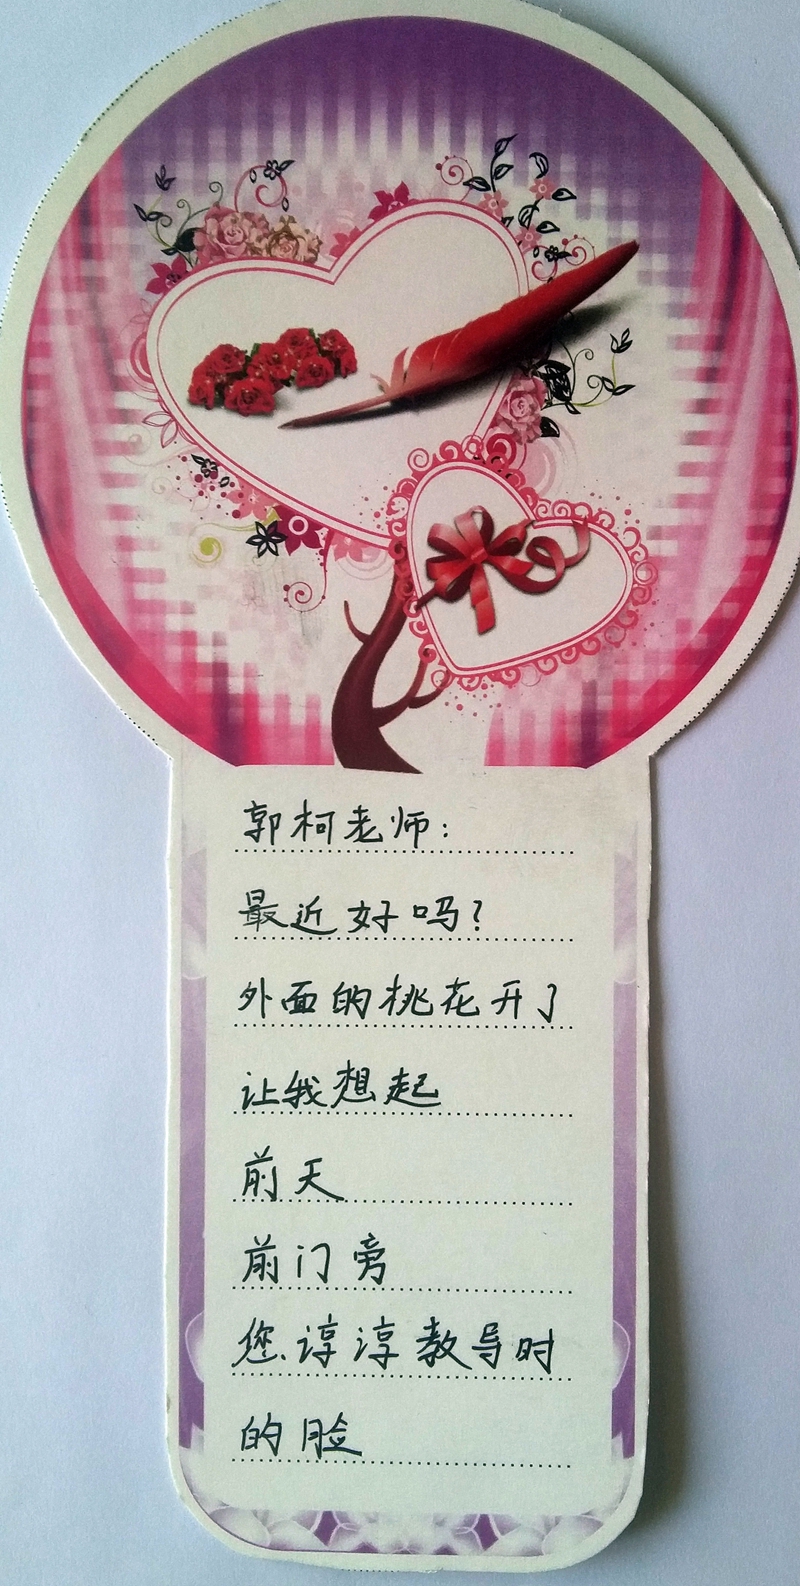 郭柯老师:
最近好吗?
外面的桃花开了
让我想起
前天
前门旁
您谆谆教导时
的脸